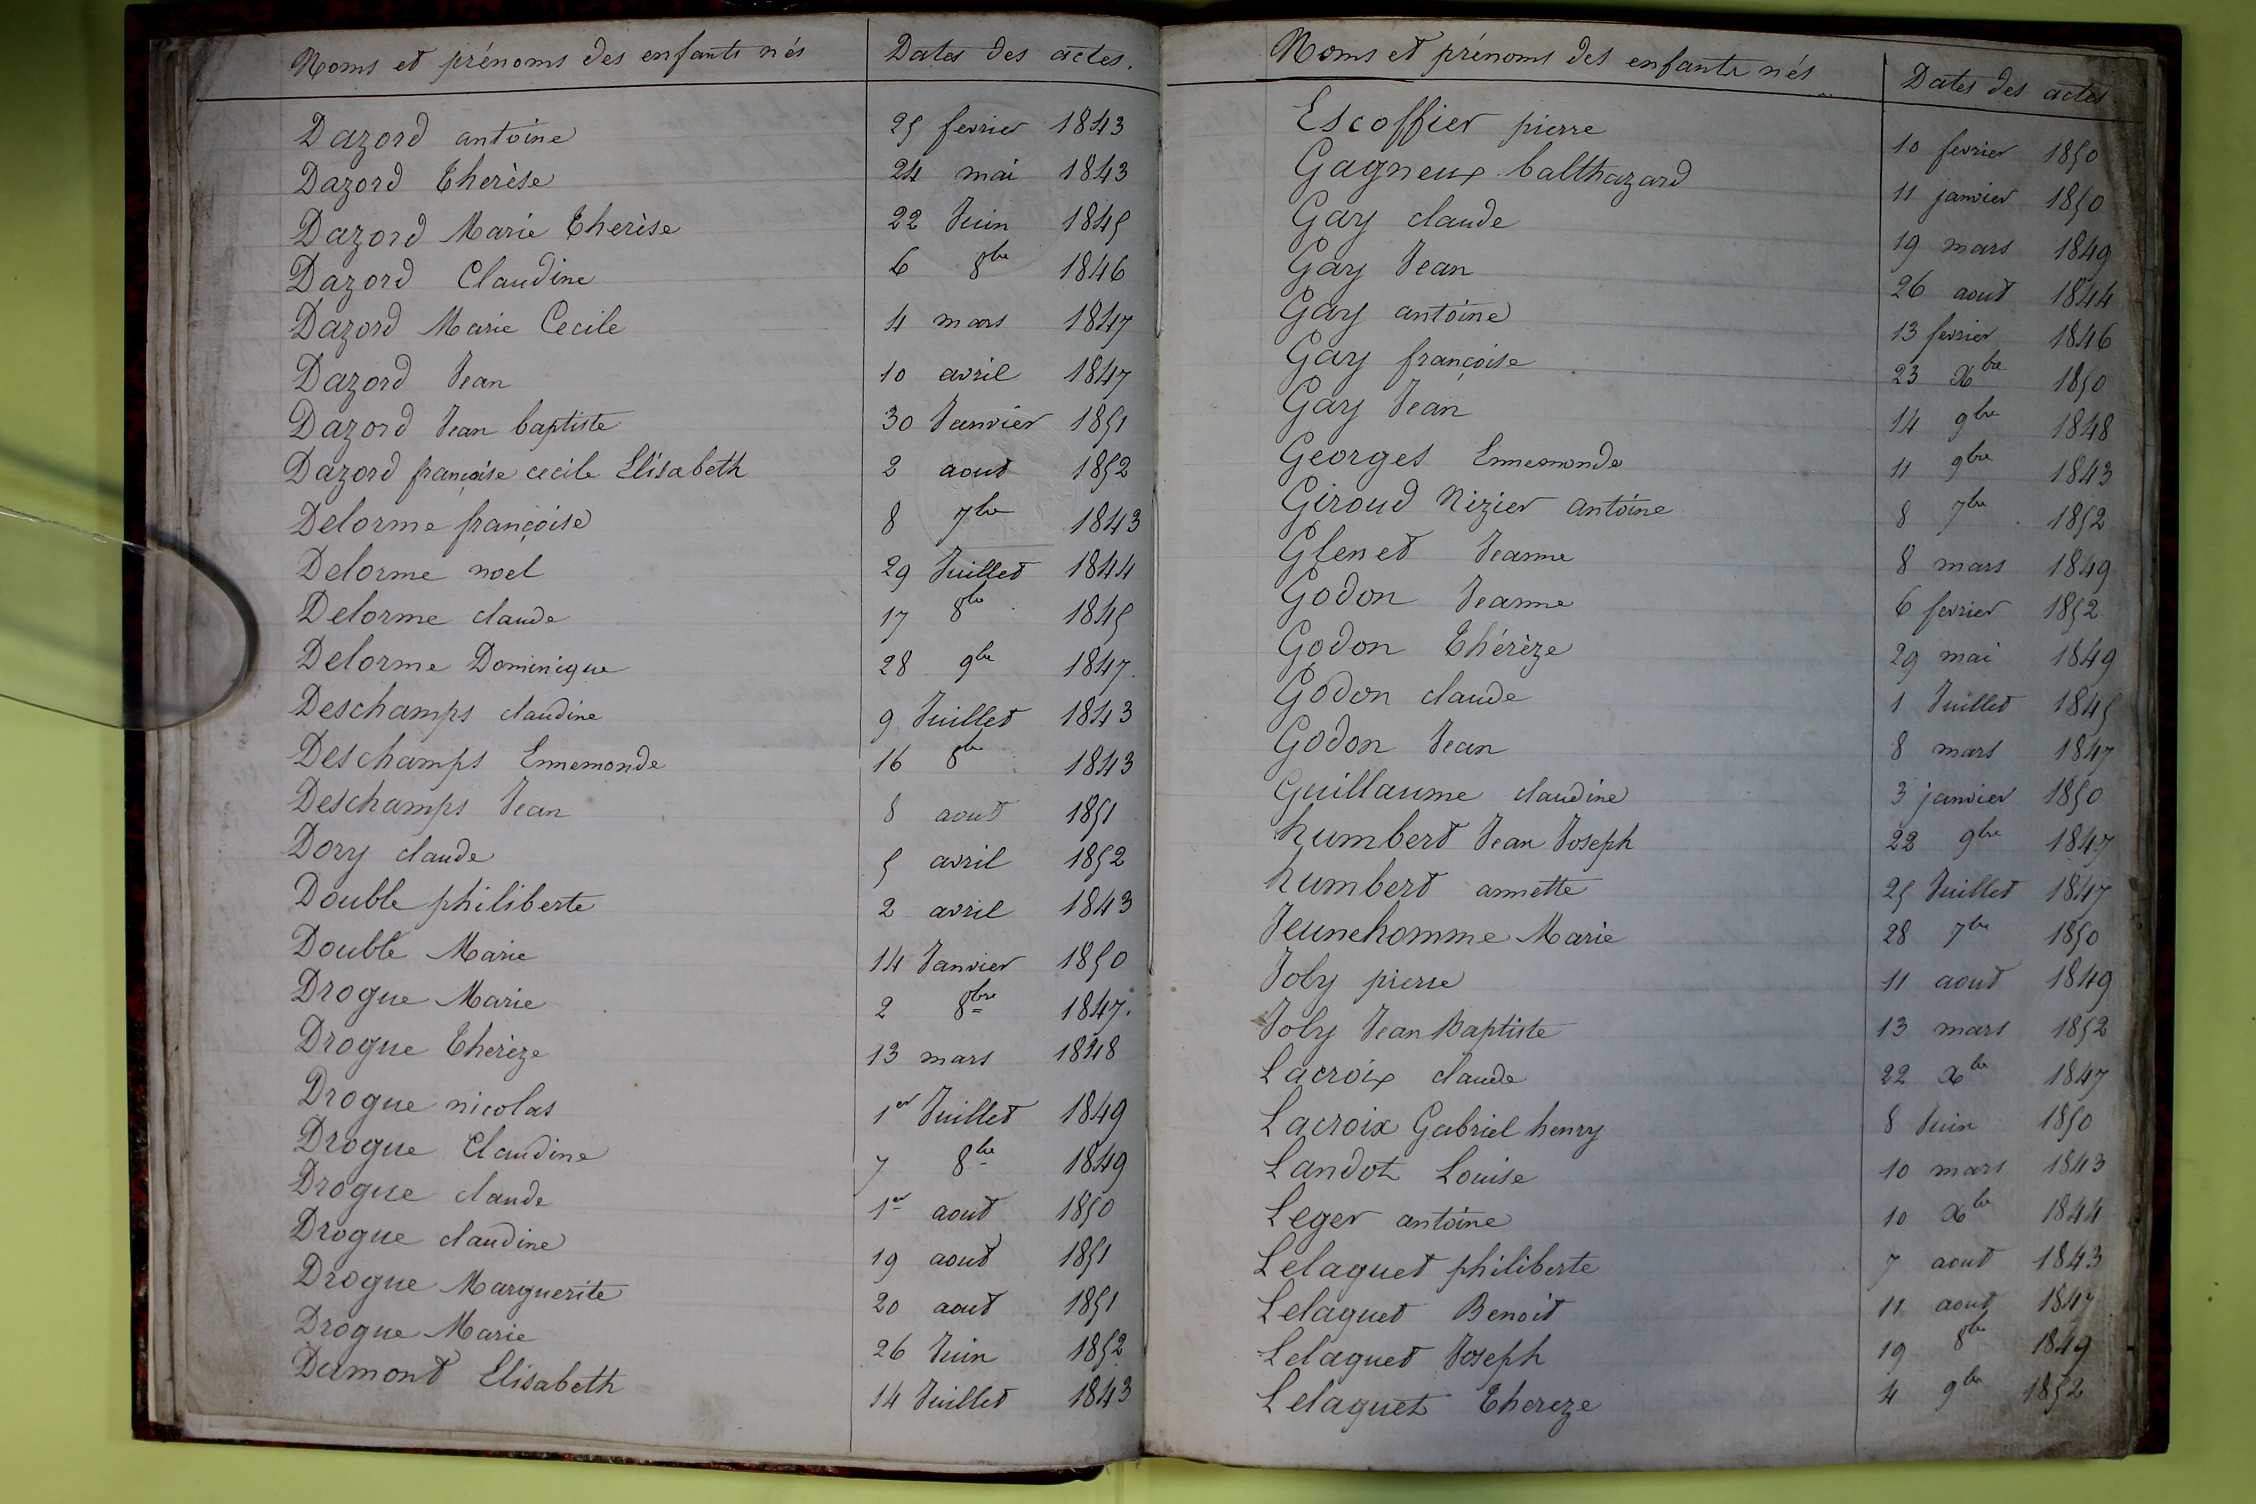 Noms et prénoms des enfants nés Dates des actes.
Dazord antoine 25 fevrier 1843
Dazord Therèse 24 mai 1843
Dazord Marie Therèse 22 Juin 1845
Dazord Claudine 6 8bre 1846
Dazord Marie Cecile 4 mars 1847
Dazord Jean 10 avril 1847
Dazord Jean baptiste 30 Janvier 1851
Dazord françoise cecile Elisabeth 2 aout 1852
Delorme françoise 8 7bre 1843
Delorme noel 29 Juillet 1844
Delorme claude 17 8bre 1845
Delorme Dominique 28 9bre 1847.
Deschamps claudine 9 Juillet 1843
Deschamps Ennemonde 16 8bre 1843
Deschamps Jean 8 aout 1851
Dory claude 5 avril 1852
Double philiberte 2 avril 1843
Double Marie 14 Janvier 1850
Drogue Marie 2 8bre 1847.
Drogue Therèze 13 mars 1848
Drogue nicolas 1er Juillet 1849
Drogue Claudine 7 8bre 1849
Drogue claude 1er aout 1850
Drogue claudine 19 aout 1851
Drogue Marguerite 20 aout 1851
Drogue Marie 26 Juin 1852
Dumont Elisabeth 14 Juillet 1843
Noms et prénoms des enfants nés Dates des actes
Escoffier pierre 10 fevrier 1850
Gagneux balthazard 11 janvier 1850
Gay claude 19 mars 1849
Gay Jean 26 aout 1844
Gay antoine 13 fevrier 1846
Gay françoise 23 Xbre 1850
Gay Jean 14 9bre 1848
Georges Ennemonde 11 9bre 1843
Giroud Nizier antoine 8 7bre 1852
Glenet Jeanne 8 mars 1849
Godon Jeanne 6 fevrier 1852
Godon Thérèze 29 mai 1849
Godon claude 1 Juillet 1845
Godon Jean 8 mars 1847
Guillaume claudine 3 janvier 1850
humbert Jean Joseph 22 9bre 1847
humbert annette 25 Juillet 1847
Jeunehomme Marie 28 7bre 1850
Joly pierre 11 aout 1849
Joly Jean Baptiste 13 mars 1852
Lacroix claude 22 Xbre 1847
Lacroix Gabriel henry 8 Juin 1850
Landot Louise 10 mars 1843
Leger antoine 10 Xbre 1844
Lelaguet philiberte 7 aout 1843
Lelaguet Benoit 11 aout 1847
Lelaguet Joseph 19 8bre 1849
Lelaguet Thereze 4 9bre 1852